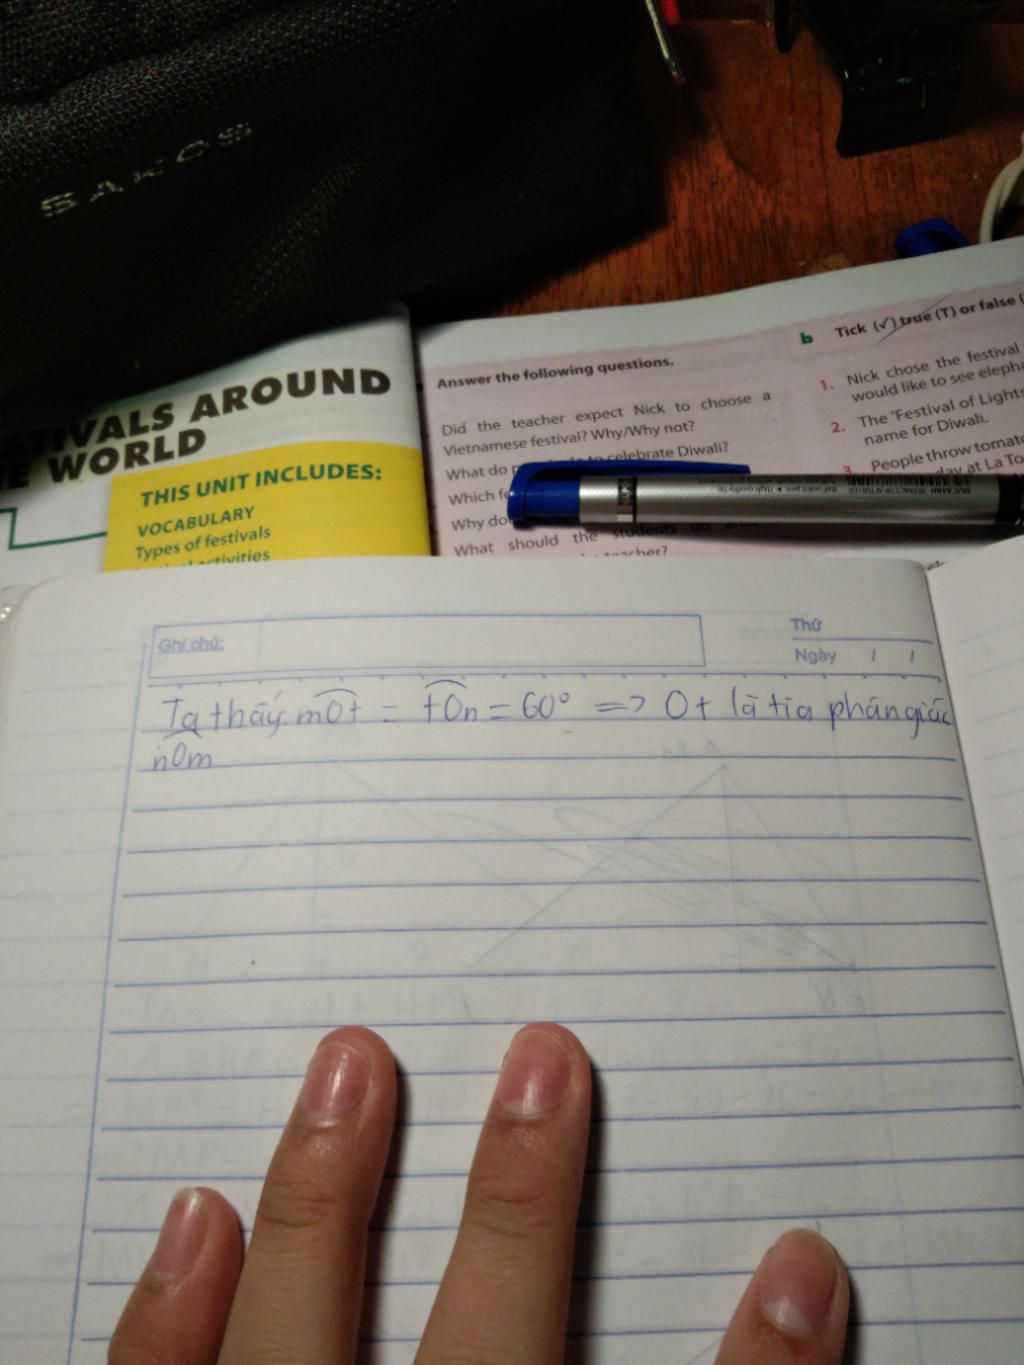 SAKOS
STIVALS AROUND
E WORLD
THIS UNIT INCLUDES:
VOCABULARY
Types of festivals
activities
Answer the following questions.
Did the teacher expect Nick to choose a
Vietnamese festival? Why/Why not?
What do to celebrate Diwali?
Which
Why do
What should the students do
teacher?
b Tick (✓) true (T) or false (
1. Nick chose the festival
would like to see eleph
2. The 'Festival of Lights
name for Diwali.
3. People throw tomato
day at La To
Ghi chú:
Thứ
Ngày / /
Ta thấy mOt = tOn = 60° => Ot là tia phân giác
nOm